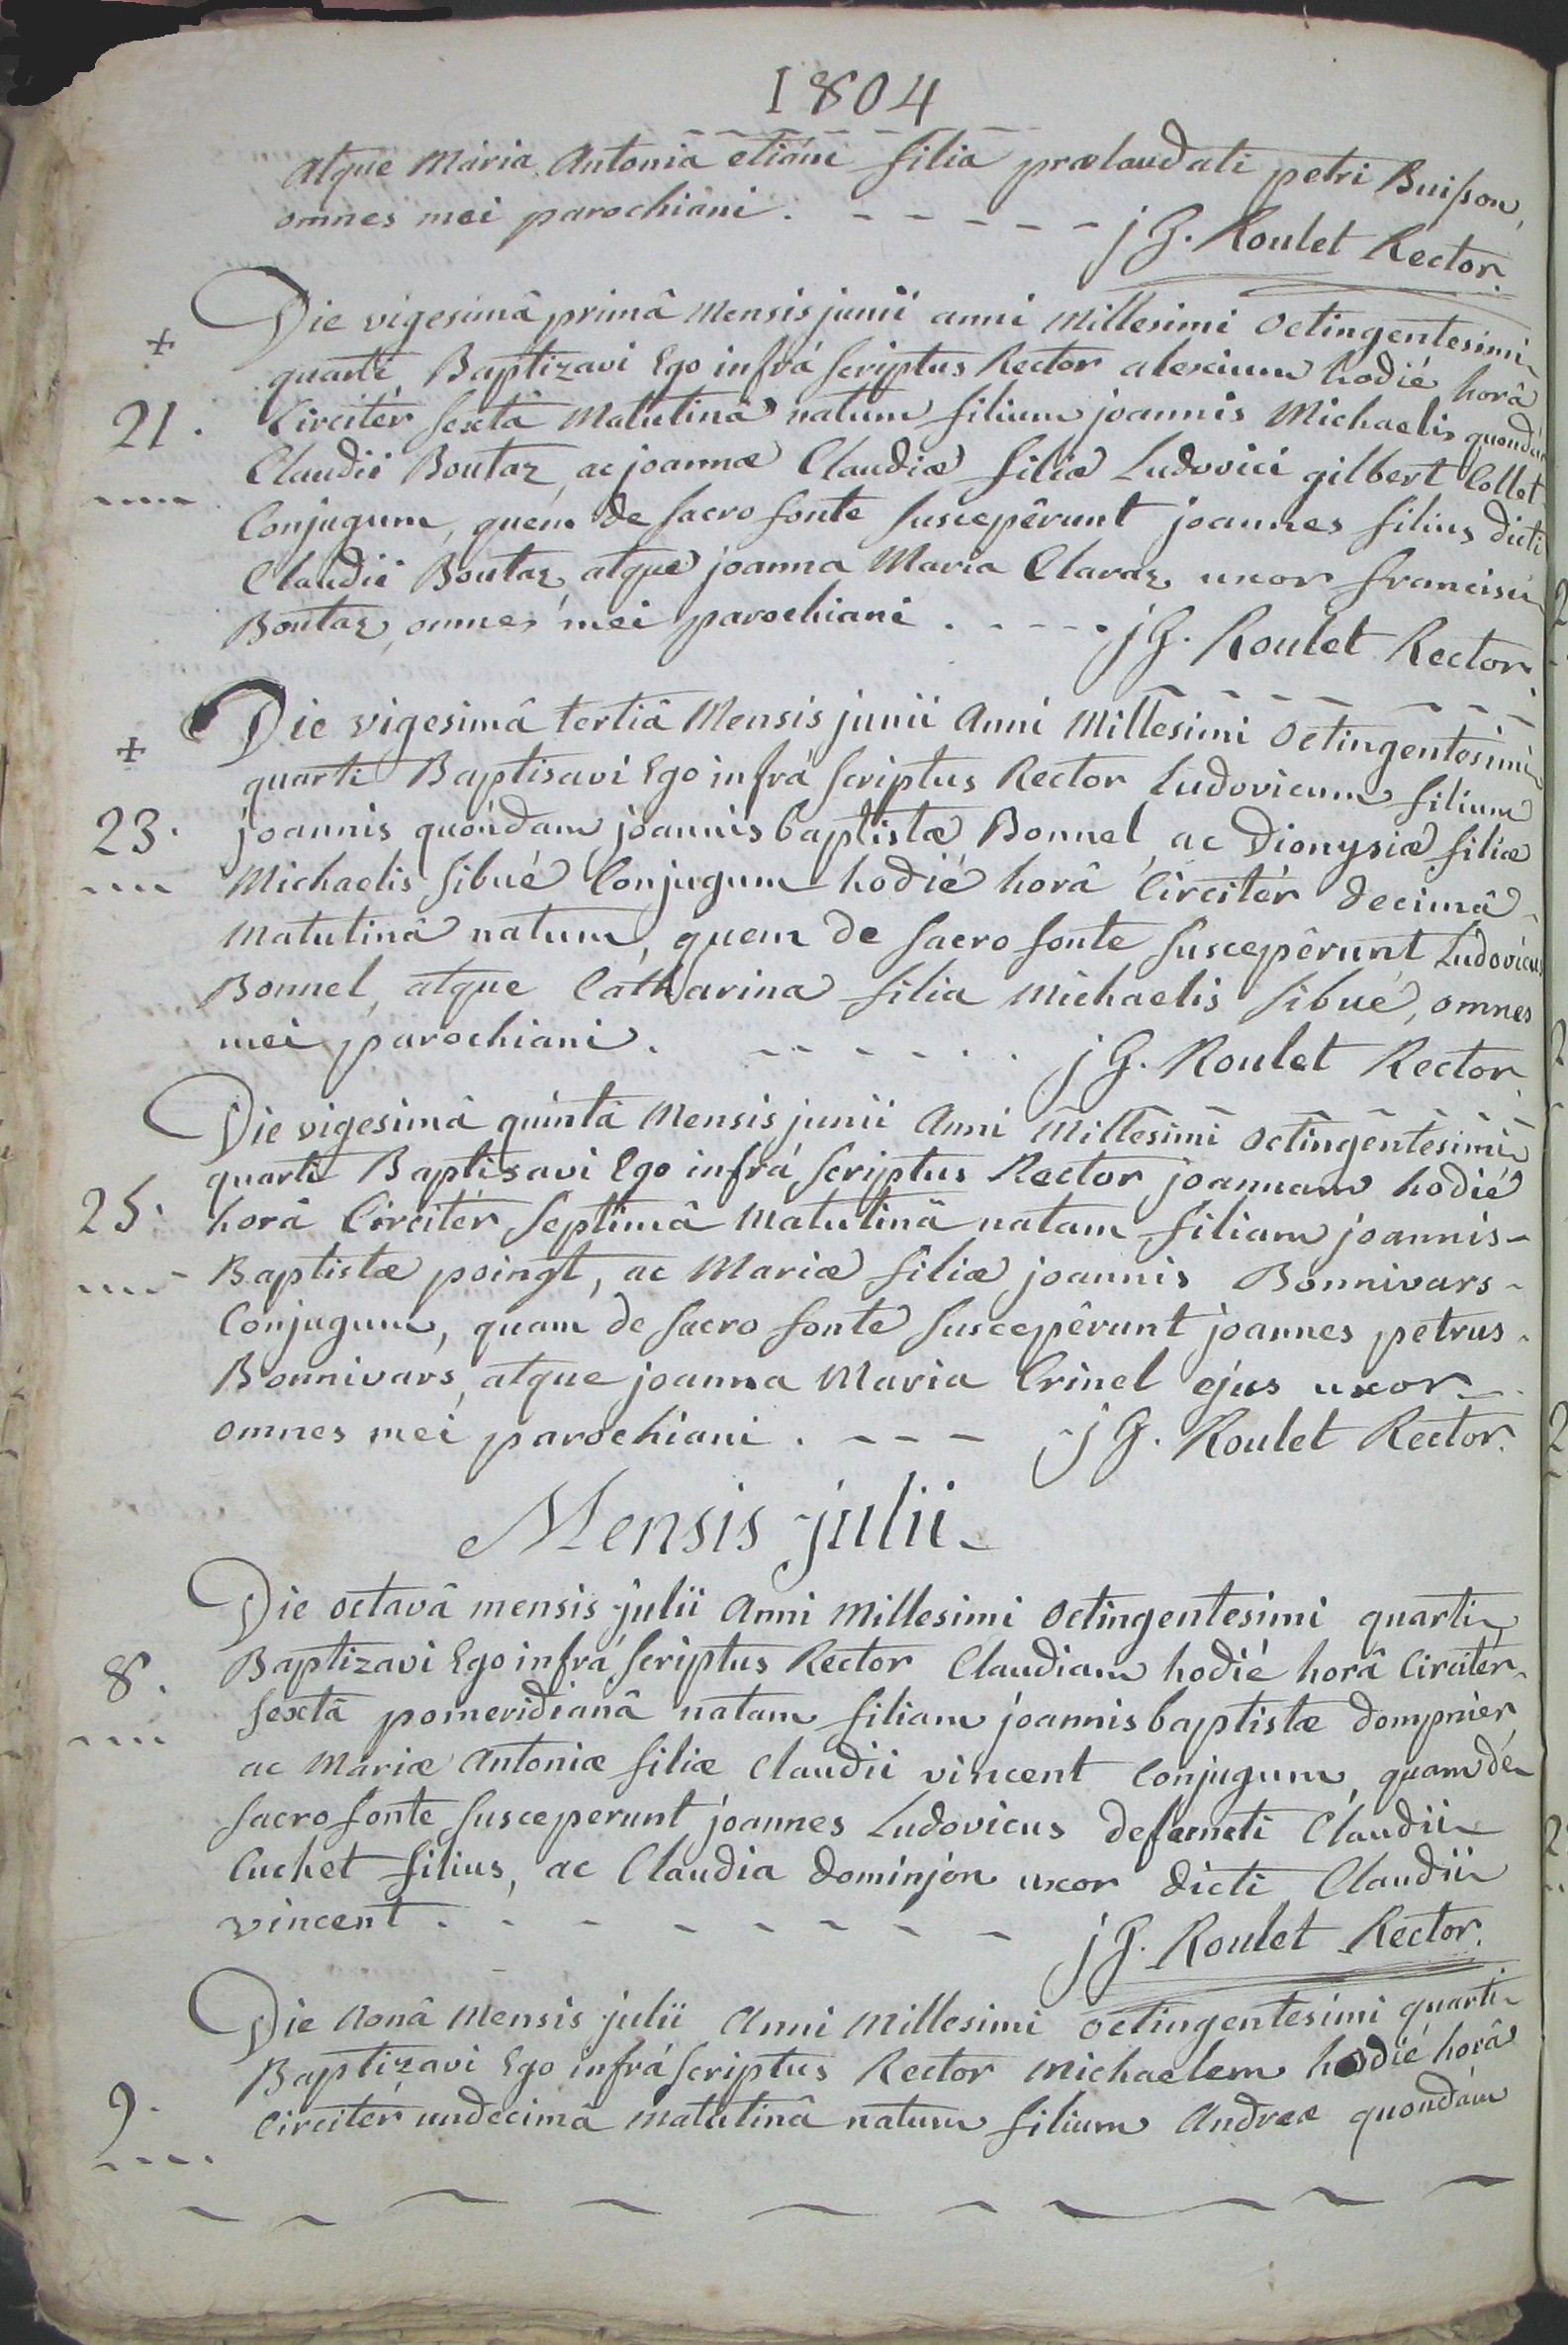 1804
atque Maria Antonia etiám filia prælaudati petri Buisson,
omnes mei parochiani. - - - - - j G. Roulet Rector.
+
Die vigesimâ primâ Mensis junii anni Millesimi Octingentesimi
quarti, Baptizavi Ego infrá scriptus Rector alexium hodié horâ
21.
Circitér sextâ Matutinâ natum filium joannis Michaelis quondám
Claudii Boutaz, ac joannæ Claudiæ filiæ Ludovici gilbert Collet
Conjugum, quém de sacro fonte suscepêrunt joannes filius dicti
Claudii Boutaz, atque joanna Maria Claraz uxor francisci
Boutaz, omnes mei parochiani. - - - - j G. Roulet Rector.
+
Die vigesimâ tertiâ Mensis junii Anni Millesimi Octingentesimi
quarti Baptisavi Ego infrá scriptus Rector Ludovicum filium
23.
joannis quondam joannis baptistæ Bonnel, ac Dionysiæ filiæ
Michaelis sibué Conjugum hodié horâ Circitér decimâ
Matutinâ natum, quem de sacro fonte suscepêrunt Ludovicus
Bonnel, atque Catharina filia Michaelis sibué, omnes
mei parochiani. - - - - - - j G. Roulet Rector.
Die vigesimâ quintâ Mensis junii Anni Millesimi Octingentesimi
quarti Baptisavi Ego infrá scriptus Rector joannam hodié
25.
horâ Circitér septimâ Matutinâ natam filiam joannis-
Baptistæ poingt, ac Mariæ filiæ joannis Bonnivars-
Conjugum, quam de sacro fonte suscepêrunt joannes petrus-
Bonnivars, atque joanna Maria Crinel ejus uxor-
omnes mei parochiani. - - - j G. Roulet Rector.
Mensis julii
Die octavâ mensis julii Anni Millesimi Octingentesimi quarti
8.
Baptizavi Ego infrá scriptus Rector Claudiam hodié horâ Circitér
sextâ pomeridianâ natam filiam joannis baptistæ dompnier,
ac Mariæ Antoniæ filiæ Claudii vincent Conjugum, quam de
sacro fonte susceperunt joannes Ludovicus defuncti Claudii
Cuchet filius, ac Claudia dominjon uxor dicti Claudii
vincent. - - - - - - - j G. Roulet Rector.
Die Nonâ Mensis julii Anni Millesimi octingentesimi quarti
Baptizavi Ego infrá scriptus Rector Michaelem hodié horâ
9.
Circitér undecimâ Matutinâ natum filium Andreæ quondám